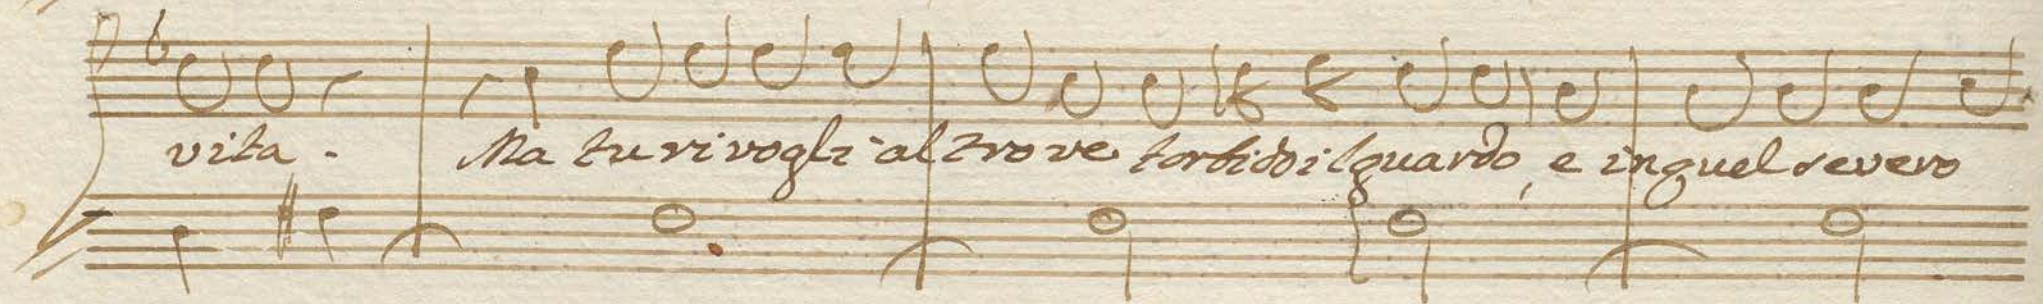 vita. Ma tu rivogli altrove torbido il guardo, e in quel severo